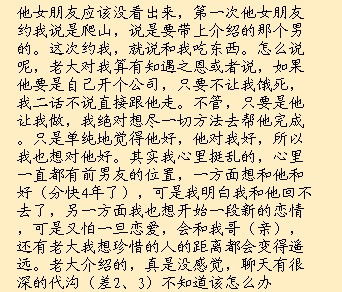 他女朋友应该没看出来，第一次他女朋友
约我说是爬山，说是要带上介绍的那个男
的。这次约我，就说和我吃东西。怎么说
呢，老大对我算有知遇之恩或者说，如果
他要是自己开个公司，只要不让我饿死，
我二话不说直接跟他走。不管，只要是他
让我做，我绝对想尽一切方法去帮他完成
。只是单纯地觉得他好，他对我好，所以
我也想对他好。其实我心里挺乱的，心里
一直都有前男友的位置，一方面想和他和
好（分快4年了），可是我明白我和他回不
去了，另一方面我也想开始一段新的恋情
，可是又怕一旦恋爱，会和我哥（亲），
还有老大我想珍惜的人的距离都会变得遥
远。老大介绍的，真是没感觉，聊天有很
深的代沟（差2、3）不知道该怎么办